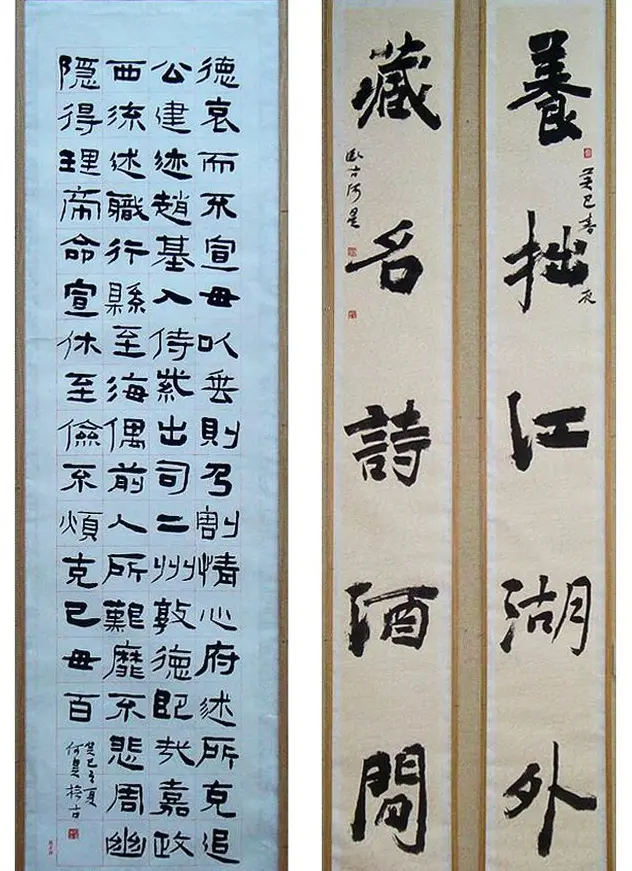 德哀而不宣毋以垂則乃割情心府述所克追
公建迹趙基入侍紫出司二州敦德配哉嘉政
西流述職行縣至海偶前人所難靡不悲周幽
隱得理帝命宣休至儉不煩克己毋百
癸巳之夏
何昱
養拙江湖外
癸巳春夜
藏名詩酒間
何昱